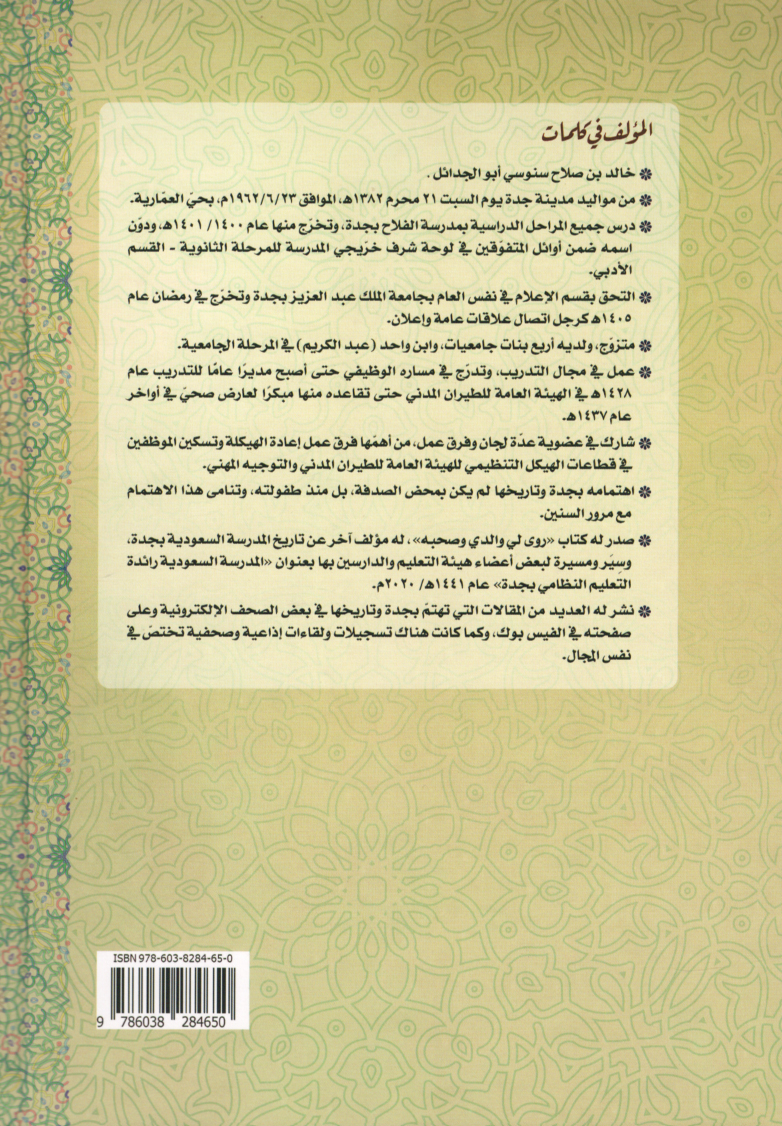 المؤلف في كلمات
❋ خالد بن صلاح سنوسي أبو الجدائل .
❋ من مواليد مدينة جدة يوم السبت ٢١ محرم ١٣٨٢هـ، الموافق ١٩٦٢/٦/٢٣م، بحيّ العمّارية.
❋ درس جميع المراحل الدراسية بمدرسة الفلاح بجدة، وتخرّج منها عام ١٤٠٠/ ١٤٠١هـ، ودوّن
اسمه ضمن أوائل المتفوّقين في لوحة شرف خرّيجي المدرسة للمرحلة الثانوية - القسم
الأدبي.
❋ التحق بقسم الإعلام في نفس العام بجامعة الملك عبد العزيز بجدة وتخرّج في رمضان عام
١٤٠٥هـ كرجل اتصال علاقات عامة وإعلان.
❋ متزوّج، ولديه أربع بنات جامعيات، وابن واحد (عبد الكريم) في المرحلة الجامعية.
❋ عمل في مجال التدريب، وتدرّج في مساره الوظيفي حتى أصبح مديرًا عامًا للتدريب عام
١٤٢٨هـ في الهيئة العامة للطيران المدني حتى تقاعده منها مبكرًا لعارض صحيّ في أواخر
عام ١٤٣٧هـ.
❋ شارك في عضوية عدّة لجان وفرق عمل، من أهمّها فرق عمل إعادة الهيكلة وتسكين الموظفين
في قطاعات الهيكل التنظيمي للهيئة العامة للطيران المدني والتوجيه المهني.
❋ اهتمامه بجدة وتاريخها لم يكن بمحض الصدفة، بل منذ طفولته، وتنامى هذا الاهتمام
مع مرور السنين.
❋ صدر له كتاب «روى لي والدي وصحبه»، له مؤلف آخر عن تاريخ المدرسة السعودية بجدة،
وسِيَر ومسيرة لبعض أعضاء هيئة التعليم والدارسين بها بعنوان «المدرسة السعودية رائدة
التعليم النظامي بجدة» عام ١٤٤١هـ/ ٢٠٢٠م.
❋ نشر له العديد من المقالات التي تهتمّ بجدة وتاريخها في بعض الصحف الإلكترونية وعلى
صفحته في الفيس بوك، وكما كانت هناك تسجيلات ولقاءات إذاعية وصحفية تختصّ في
نفس المجال.
ISBN 978-603-8284-65-0
9 786038 284650